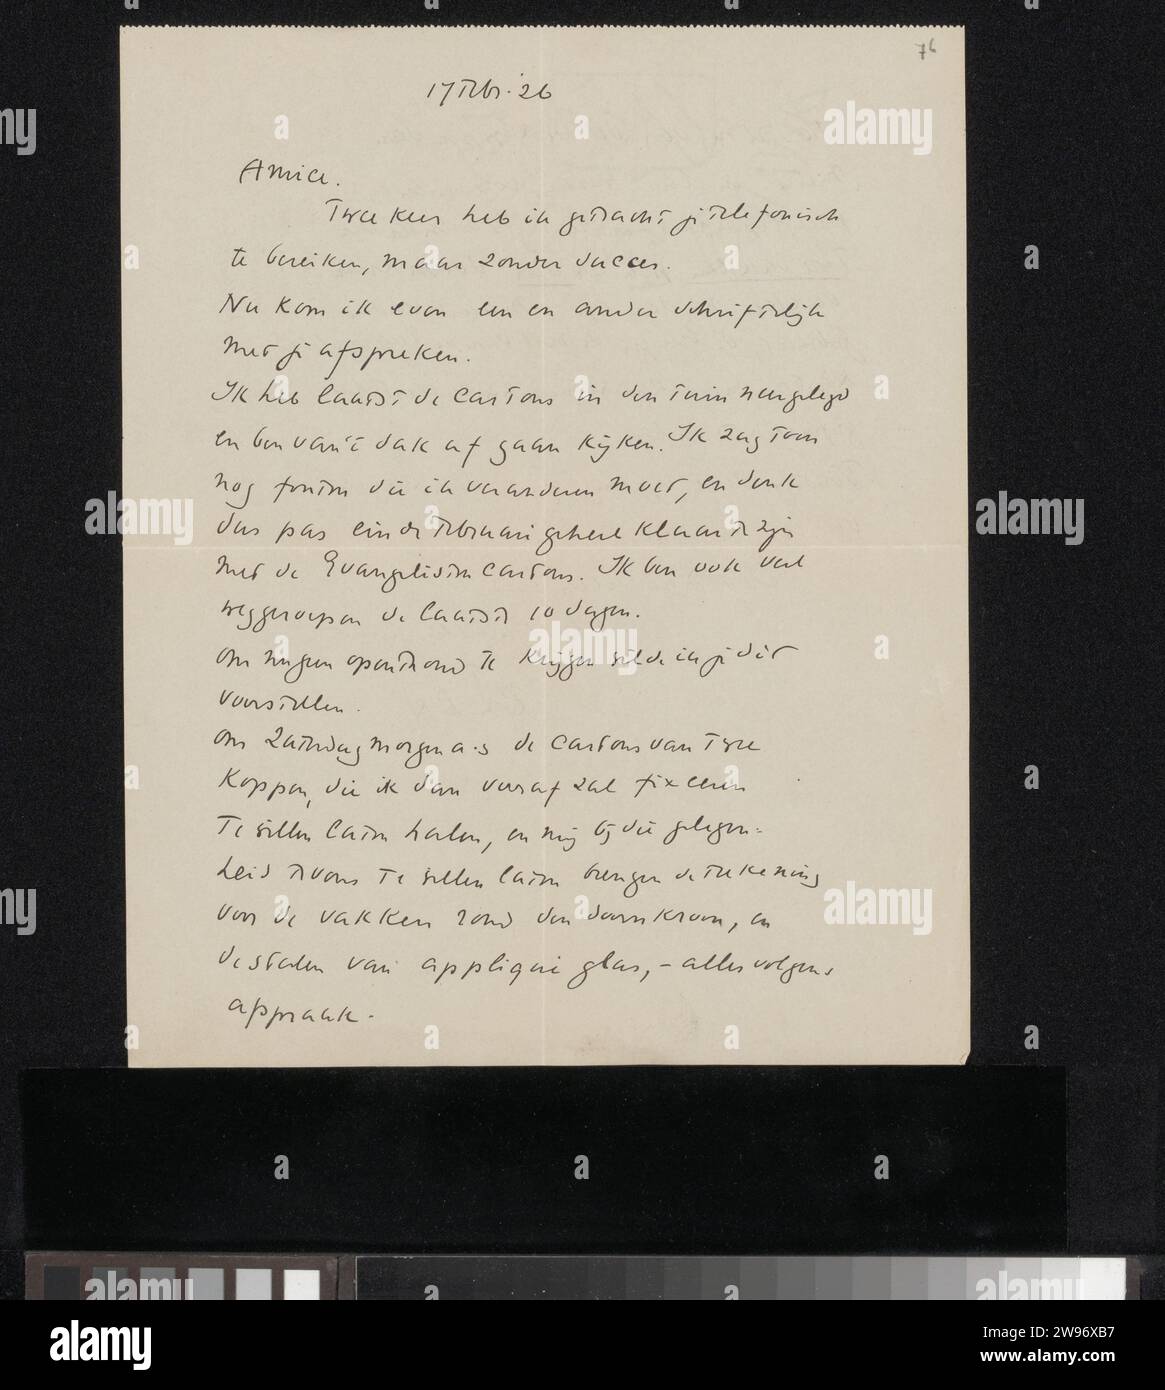 76
17 Febr. '26
Amice.
Twee keer heb ik getracht je telefonisch
te bereiken, maar zonder succes.
Nu kom ik even een en ander schriftelijk
met je afspreken.
Ik heb laatst de cartons in den tuin neergelegd
en ben van 't dak af gaan kijken. Ik zag toen
nog fouten die ik veranderen moet, en denk
dus pas einde Februari geheel klaar te zijn
met de Evangelisten cartons. Ik ben ook veel
weggeroepen de laatste 10 dagen.
Om nu geen oponthoud te krijgen wilde ik je dit
voorstellen.
Om Zaterdagmorgen a.s de cartons van twee
koppen, die ik dan vooraf zal fixeeren
te willen laten halen, en mij bij die gelegen=
heid tevens te willen laten brengen de teekening
voor de vakken rond den doornkroon, en
de stalen van appliqué glas, – alles volgens
afspraak.
alamy
alamy
Image ID: 2W96XB7
www.alamy.com